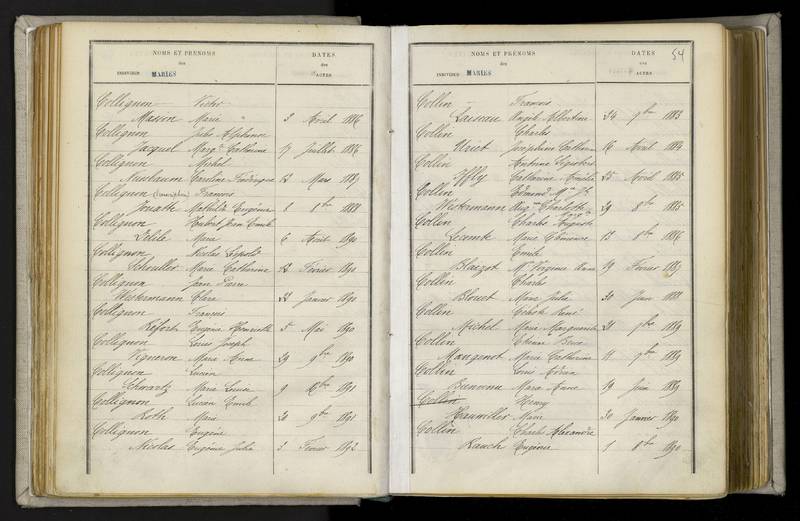 NOMS ET PRÉNOMS
des
INDIVIDUS MARIÉS
DATES
des
ACTES
Collignon Victor
Masson Marie 3 Avril 1886
Collignon Jules Alphonse
Jacquel Marg.te Catherine 17 Juillet 1886
Collignon Michel
Nussbaum Caroline Frédérique 12 Mars 1887
Collignon François
Mathilde Eugénie 8bre 1888
Collignon Jean
Marie 6 Août 1890
Collignon Nicolas Léopold
Schouller Marie Catherine 22 Février 1890
Collignon Jean Pierre
Westermann Clara 22 Janvier 1890
Collignon François
Eugénie Henriette 31 Mai 1890
Collignon Louis Joseph
Vigneron Marie Anne 29 9bre 1890
Collignon Lucien
Schwartz Marie Louise 9 1891
Collignon Lucien
Roth Marie 30 9bre 1891
Collignon Eugène
Nicolas Eugénie Julie 3 Février 1892
54
NOMS ET PRÉNOMS
des
INDIVIDUS MARIÉS
DATES
des
ACTES
Collin François
Albertine 24 9bre 1883
Collin Charles
Joséphine Catherine 16 Avril 1884
Collin Antoine
Iffly Catherine Amélie 25 Avril 1885
Collin Edmond
Westermann Charlotte 29 8bre 1885
Collin Charles Auguste
Lecomte Marie 13 8bre 1886
Collin Emile
Blaizot Virginie 19 Février 1887
Collin Charles
Blouet Marie Julie 30 Juin 1888
Collin René
Michel Marie Marguerite 21 9bre 1889
Collin Etienne
Mangenot Marie Catherine 11 9bre 1889
Collin Louis
Marie Anne 19 Juin 1889
Collin Henry
Marie 30 Janvier 1890
Collin Charles Alexandre
Rauch Eugénie 1 8bre 1890